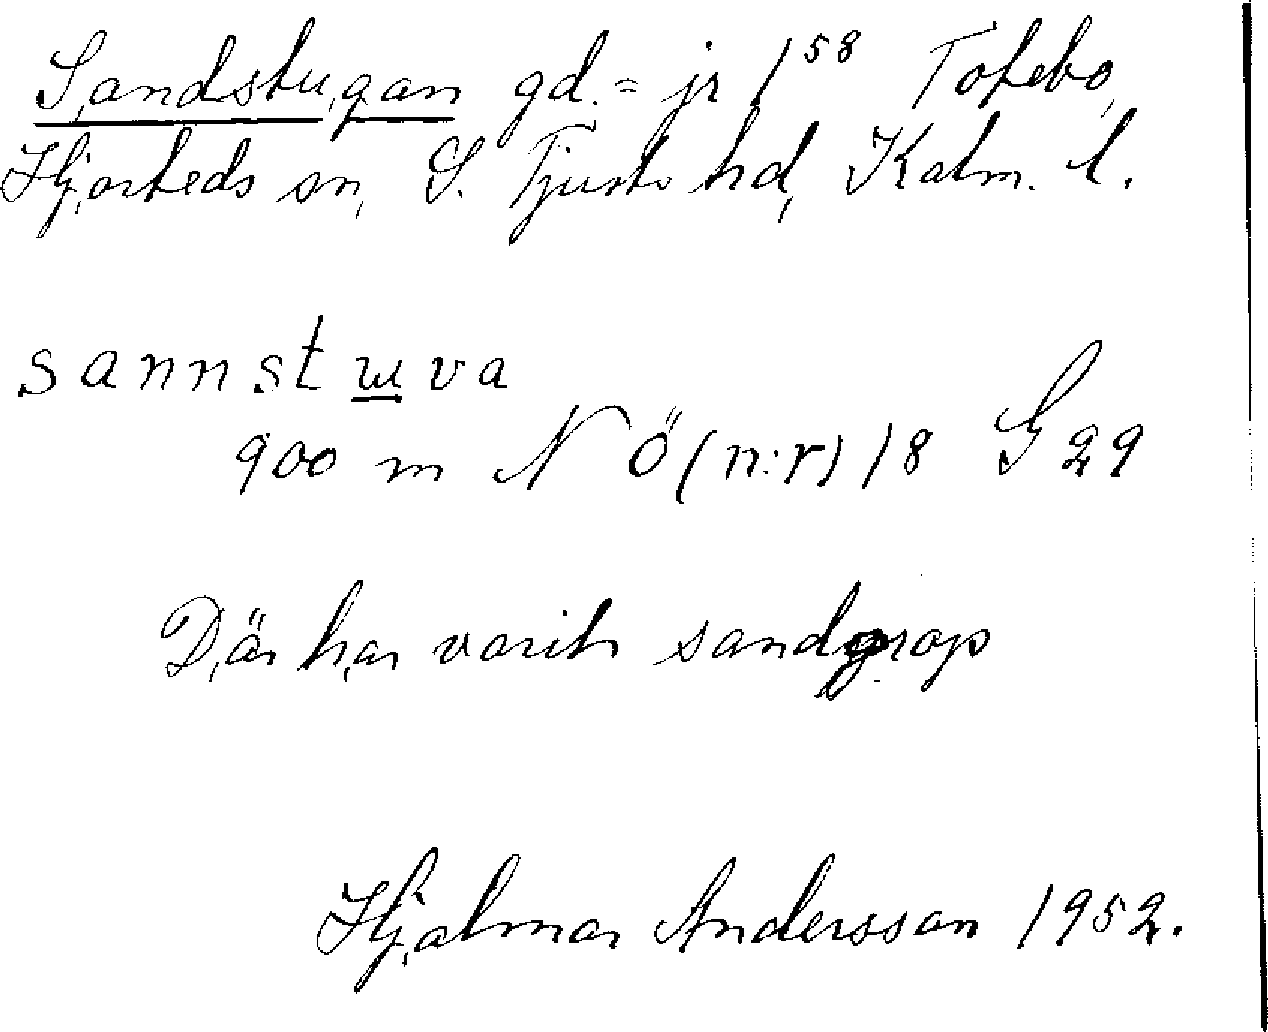 Sandstugan gd. = jr 1⁵⁸ Totebo,
Hjorteds sn, S. Tjusts hd, Kalm. l.
sannstuva
900 m N Ö (n:r) 18 G 29
Där har varit sandgrop
Hjalmar Andersson 1952.